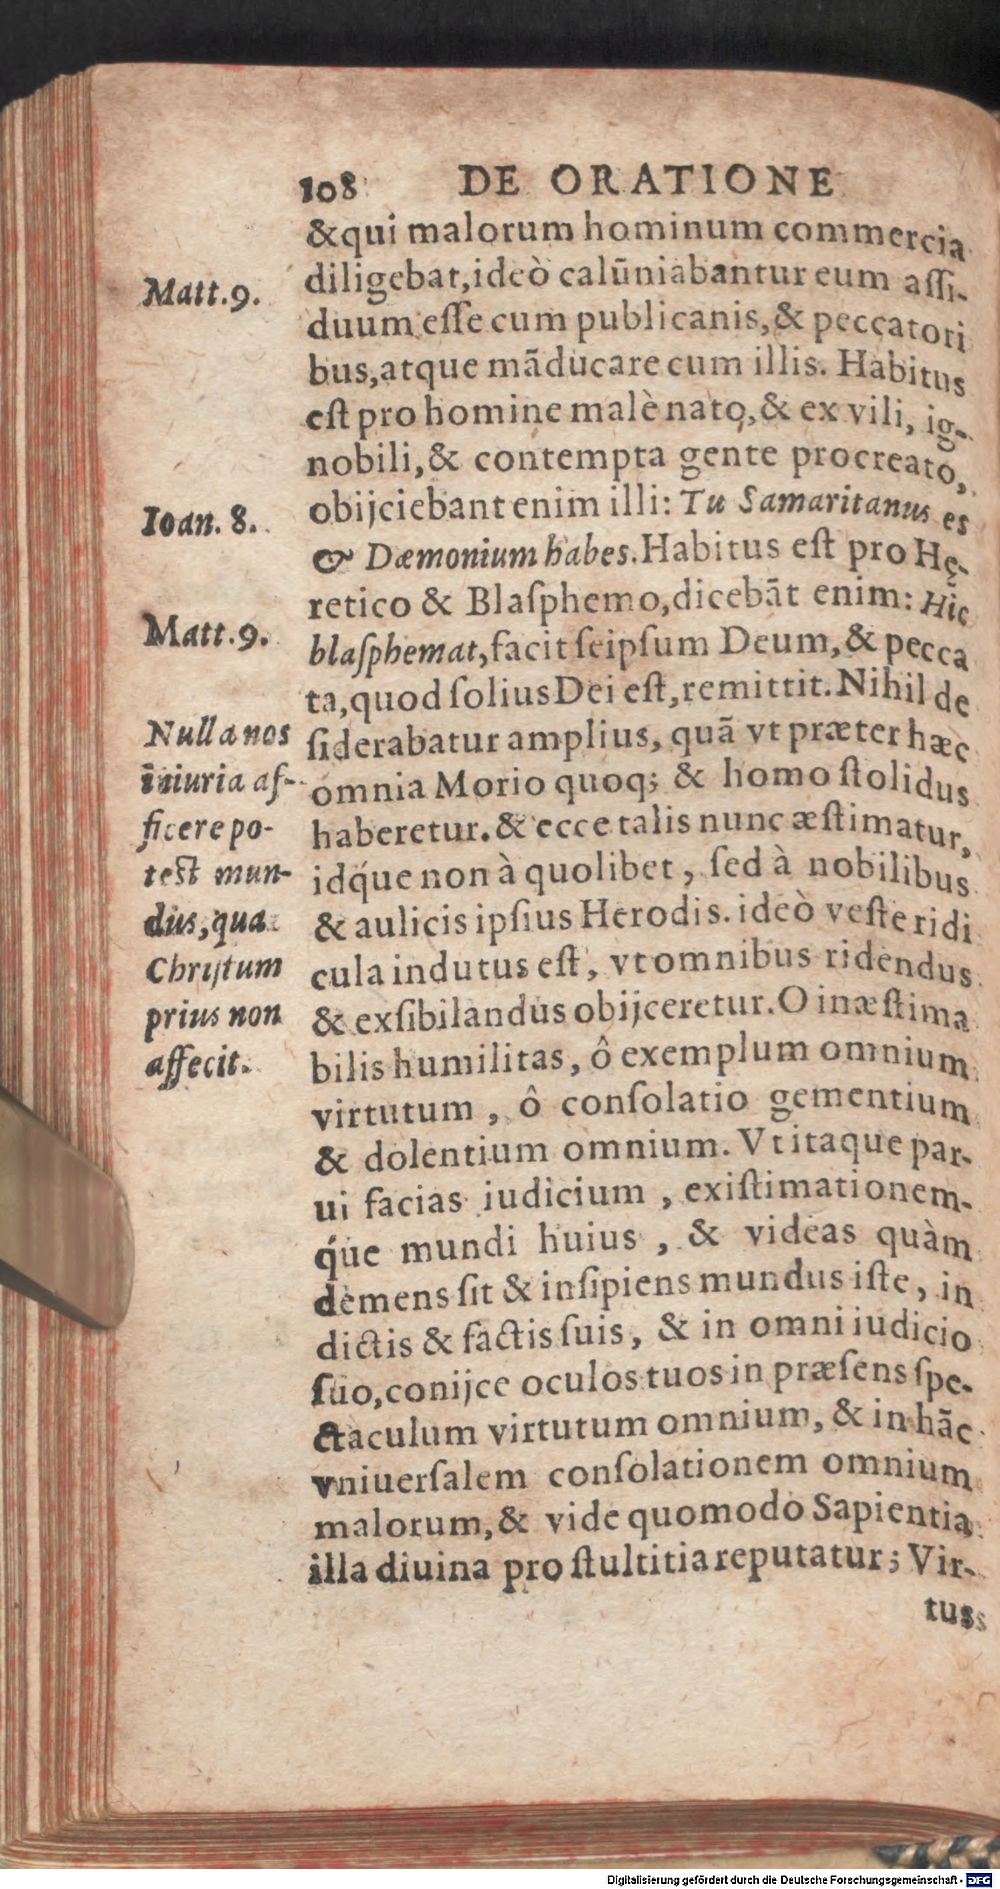 108 DE ORATIONE
&qui malorum hominum commercia
diligebat,ideò calũniabantur eum aſſi-
duum eſſe cum publicanis,& peccatori
bus,atque mãducare cum illis. Habitus
eſt pro homine malè nato,& ex vili, ig-
nobili,& contempta gente procreato,
obijciebant enim illi: Tu Samaritanus es
& Dæmonium habes. Habitus eſt pro Hę-
retico & Blaſphemo,dicebãt enim: Hic
blaſphemat,facit ſeipſum Deum,& pecca
ta,quod ſolius Dei eſt,remittit. Nihil de
ſiderabatur amplius, quã vt præter hæc
omnia Morio quoq; & homo ſtolidus
haberetur. & ecce talis nunc æſtimatur,
idq́ue non à quolibet, ſed à nobilibus
& aulicis ipſius Herodis. ideò veſte ridi
cula indutus eſt, vt omnibus ridendus
& exſibilandus obijceretur. O inæſtima
bilis humilitas, ô exemplum omnium
virtutum, ô conſolatio gementium
& dolentium omnium. Vt itaque par-
ui facias iudicium, exiſtimationem-
q́ue mundi huius, & videas quàm
demens ſit & inſipiens mundus iſte, in
dictis & factis ſuis, & in omni iudicio
ſuo,conijce oculos tuos in præſens ſpe-
ctaculum virtutum omnium, & in hãc
vniuerſalem conſolationem omnium
malorum,& vide quomodo Sapientia
illa diuina pro ſtultitia reputatur; Vir-
tus
Matt.9.
Ioan. 8.
Matt.9.
Nulla nos
iniuria af-
ficere po-
test mun-
dus,qua
Chriſtum
prius non
affecit.
Digitalisierung gefördert durch die Deutsche Forschungsgemeinschaft - DFG